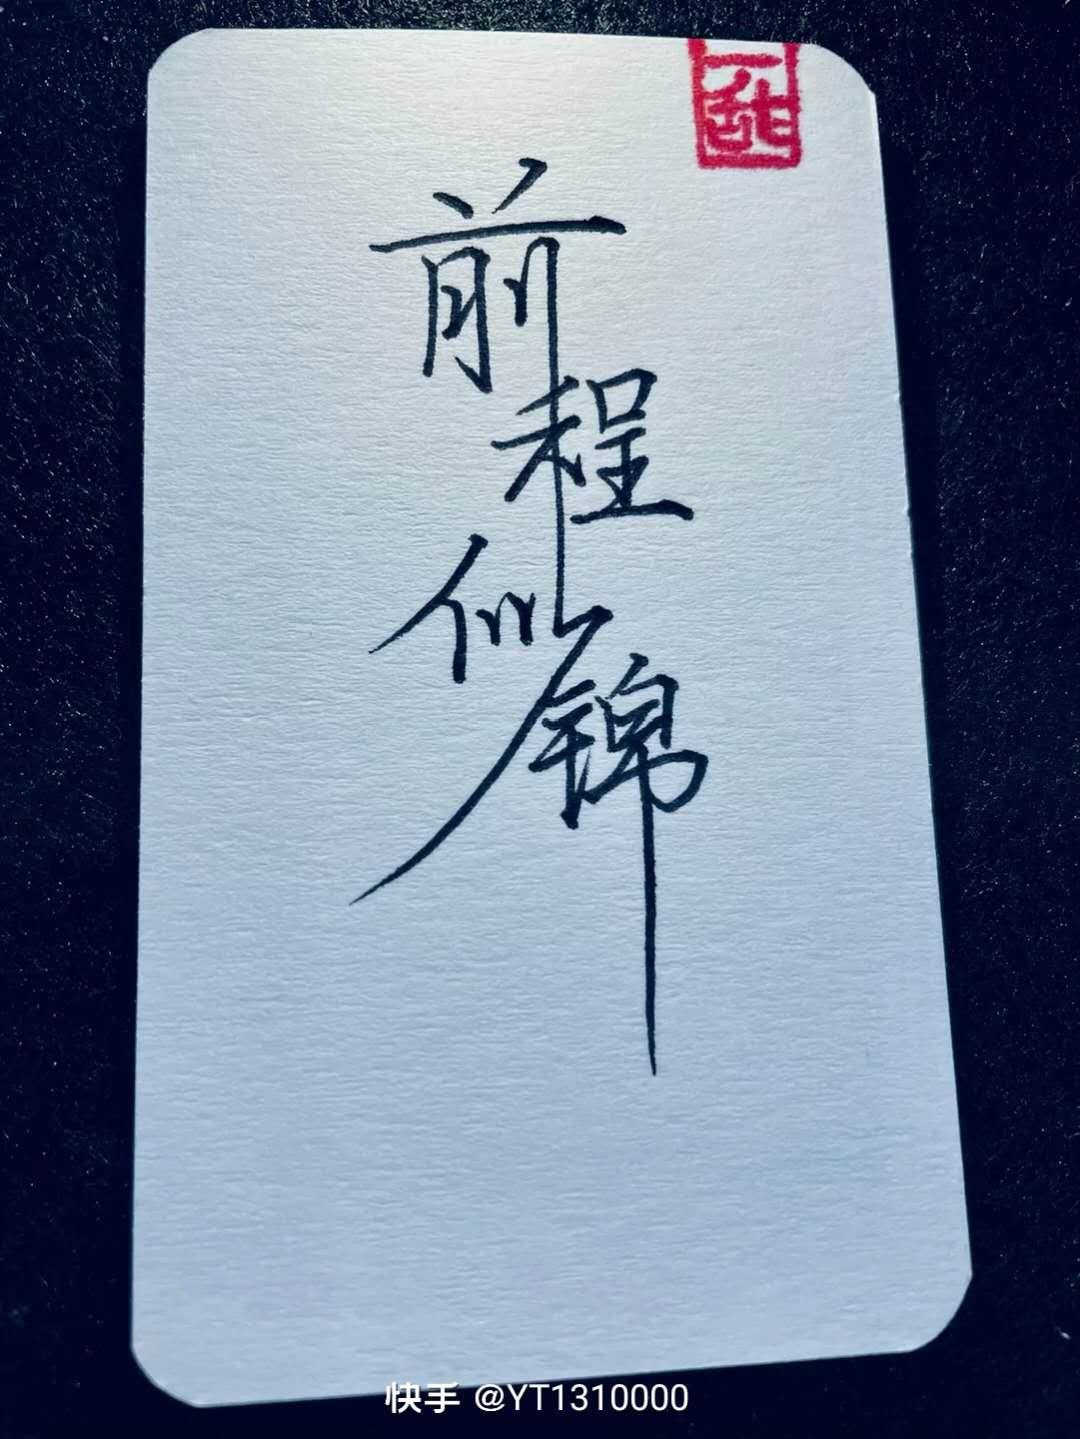 一甜
前程似锦
快手 @YT1310000